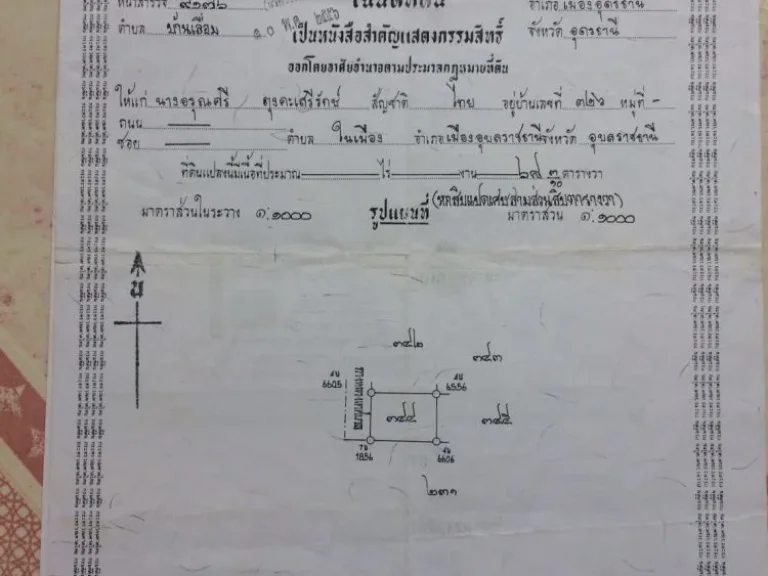 หน้าสำรวจ ๙๑๗๖
ตำบล บ้านเลื่อม ๑๐ พ.ค. ๒๕๕๖
อำเภอเมืองอุดรธานี
จังหวัด อุดรธานี
เป็นหนังสือสำคัญแสดงกรรมสิทธิ์
ออกโดยอาศัยอำนาจตามประมวลกฎหมายที่ดิน
ให้แก่ นางอรุณศรี ตุงคะเสรีรักษ์ สัญชาติ ไทย อยู่บ้านเลขที่ ๓๒๖ หมู่ที่ -
ถนน
ซอย ตำบล ในเมือง อำเภอเมืองอุบลราชธานี จังหวัด อุบลราชธานี
ที่ดินแปลงนี้มีเนื้อที่ประมาณ ไร่ งาน ตารางวา
(หกสิบแปดเศษสามส่วนสิบตารางวา)
มาตราส่วนในระวาง ๑:๑๐๐๐ รูปแผนที่ มาตราส่วน ๑:๑๐๐๐
น
๓๔๒
๓๔๓
6605
6556
๓๔๔
๓๔๕
1856
6606
๒๓๑